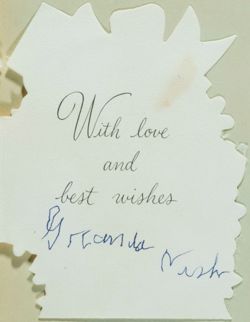 With love
and
best wishes
Grandma
Nish